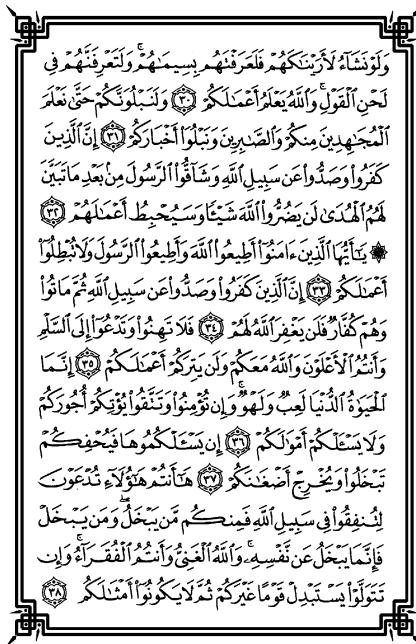 وَلَوۡ نَشَآءُ لَأَرَيۡنَٰكَهُمۡ فَلَعَرَفۡتَهُم بِسِيمَٰهُمۡۚ وَلَتَعۡرِفَنَّهُمۡ فِي
لَحۡنِ ٱلۡقَوۡلِۚ وَٱللَّهُ يَعۡلَمُ أَعۡمَٰلَكُمۡ ٣٠ وَلَنَبۡلُوَنَّكُمۡ حَتَّىٰ نَعۡلَمَ
ٱلۡمُجَٰهِدِينَ مِنكُمۡ وَٱلصَّٰبِرِينَ وَنَبۡلُوَاْ أَخۡبَارَكُمۡ ٣١ إِنَّ ٱلَّذِينَ
كَفَرُواْ وَصَدُّواْ عَن سَبِيلِ ٱللَّهِ وَشَآقُّواْ ٱلرَّسُولَ مِنۢ بَعۡدِ مَا تَبَيَّنَ
لَهُمُ ٱلۡهُدَىٰ لَن يَضُرُّواْ ٱللَّهَ شَيۡـٔٗا وَسَيُحۡبِطُ أَعۡمَٰلَهُمۡ ٣٢
۞ يَٰٓأَيُّهَا ٱلَّذِينَ ءَامَنُوٓاْ أَطِيعُواْ ٱللَّهَ وَأَطِيعُواْ ٱلرَّسُولَ وَلَا تُبۡطِلُوٓاْ
أَعۡمَٰلَكُمۡ ٣٣ إِنَّ ٱلَّذِينَ كَفَرُواْ وَصَدُّواْ عَن سَبِيلِ ٱللَّهِ ثُمَّ مَاتُواْ
وَهُمۡ كُفَّارٞ فَلَن يَغۡفِرَ ٱللَّهُ لَهُمۡ ٣٤ فَلَا تَهِنُواْ وَتَدۡعُوٓاْ إِلَى ٱلسَّلۡمِ
وَأَنتُمُ ٱلۡأَعۡلَوۡنَ وَٱللَّهُ مَعَكُمۡ وَلَن يَتِرَكُمۡ أَعۡمَٰلَكُمۡ ٣٥ إِنَّمَا
ٱلۡحَيَوٰةُ ٱلدُّنۡيَا لَعِبٞ وَلَهۡوٞۚ وَإِن تُؤۡمِنُواْ وَتَتَّقُواْ يُؤۡتِكُمۡ أُجُورَكُمۡ
وَلَا يَسۡـَٔلۡكُمۡ أَمۡوَٰلَكُمۡ ٣٦ إِن يَسۡـَٔلۡكُمُوهَا فَيُحۡفِكُمۡ
تَبۡخَلُواْ وَيُخۡرِجۡ أَضۡغَٰنَكُمۡ ٣٧ هَٰٓأَنتُمۡ هَٰٓؤُلَآءِ تُدۡعَوۡنَ
لِتُنفِقُواْ فِي سَبِيلِ ٱللَّهِ فَمِنكُم مَّن يَبۡخَلُۖ وَمَن يَبۡخَلۡ
فَإِنَّمَا يَبۡخَلُ عَن نَّفۡسِهِۦۚ وَٱللَّهُ ٱلۡغَنِيُّ وَأَنتُمُ ٱلۡفُقَرَآءُۚ وَإِن
تَتَوَلَّوۡاْ يَسۡتَبۡدِلۡ قَوۡمًا غَيۡرَكُمۡ ثُمَّ لَا يَكُونُوٓاْ أَمۡثَٰلَكُم ٣٨